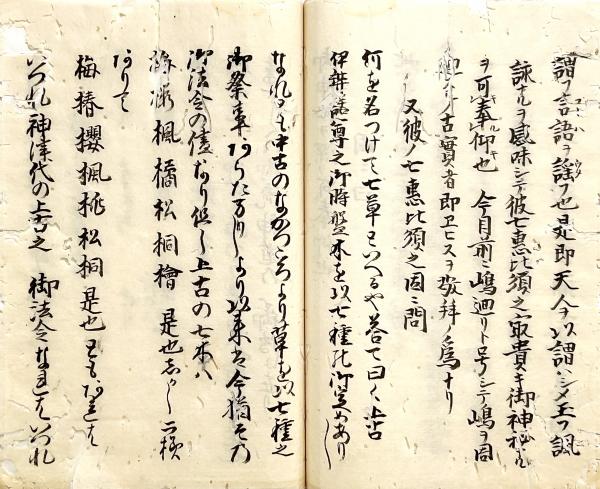 謂フ言語ヲ謡フ也是即天今以謂ハシメ玉フ諷
詠ナルヲ感味シテ彼七恵比須之最貴キ御神秘ナル
ヲ可奉仰也 今目前ニ嶋廻リト号シテ嶋ヲ回
ノ古實者即エヒスヲ敬拝ノ為ナリ
又彼ノ七恵比須之因ニ問
何を名つけて七草といへるや答て曰く上古
伊弉諾尊之御時聖木を以七種の御定めあり
なれとも中古のなかつころより草を以七種之
御祭事ありたりしより以来今猶その
御法令の儘なり但し上古の七木ハ
楓橘松桐檜 是也しかし二様
ありて
梅椿櫻楓桃松桐是也とも
いつれ神津代の上 之 御法令なれはいつれ